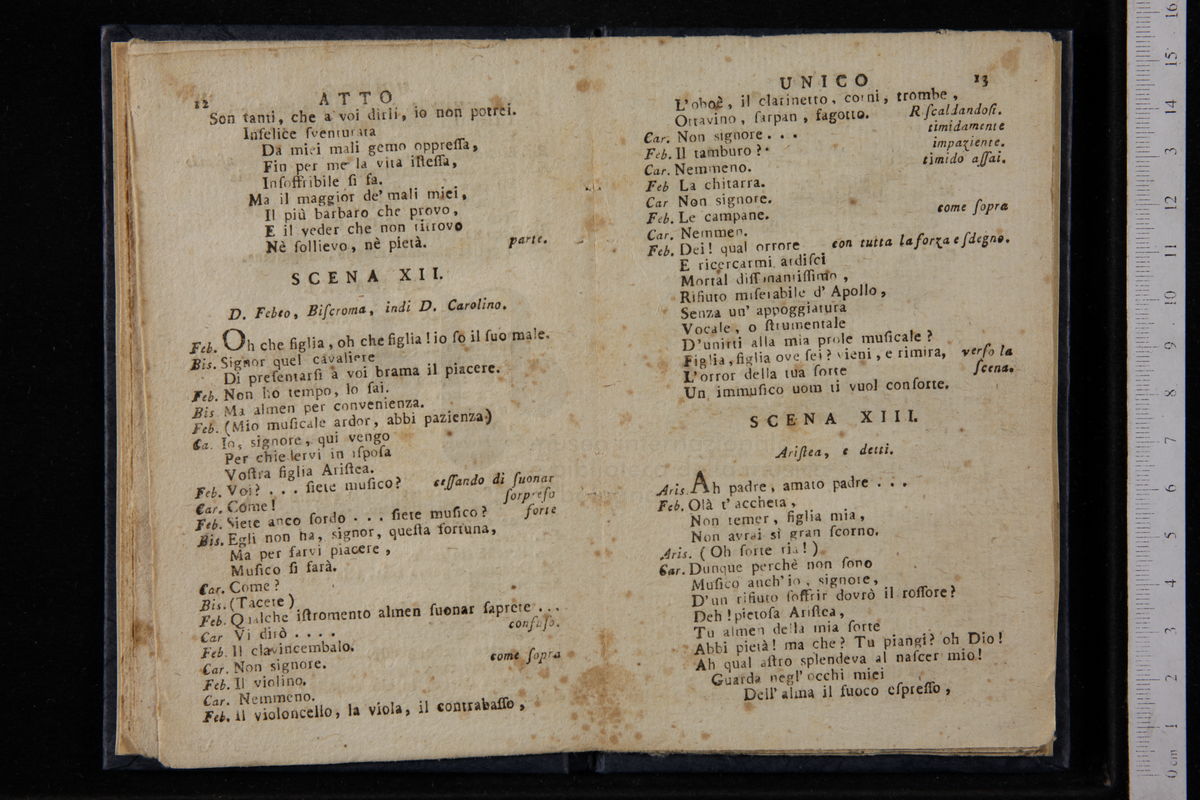 12 ATTO
Son tanti, che a voi dirli, io non potrei.
Infelice ſventurata
Da miei mali gemo oppreſſa,
Fin per me la vita iſteſſa,
Inſoffribile ſi fa.
Ma il maggior de' mali miei,
Il più barbaro che provo,
E il veder che non ritrovo
Nè ſollievo, nè pietà. parte.
SCENA XII.
D. Febeo, Biſcroma, indi D. Carolino.
Feb. Oh che figlia, oh che figlia! io ſo il ſuo male.
Bis. Signor quel cavaliere
Di preſentarſi a voi brama il piacere.
Feb. Non ho tempo, lo ſai.
Bis Ma almen per convenienza.
Feb. (Mio muſicale ardor, abbi pazienza)
Ca. Io, signore, qui vengo
Per chiedervi in iſpoſa
Voſtra figlia Ariſtea.
Feb. Voi? . . . ſiete muſico? ceſſando di ſuonar
Car. Come! ſorpreſo
Feb. Siete anco ſordo . . . ſiete muſico? forte
Bis. Egli non ha, signor, queſta fortuna,
Ma per farvi piacere,
Muſico ſi farà.
Car. Come?
Bis. (Tacete)
Feb. Qualche iſtromento almen ſuonar ſaprete . . .
Car Vi dirò . . . . confuſo.
Feb. Il clavincembalo.
Car. Non signore. come ſopra
Feb. Il violino.
Car. Nemmeno.
Feb. Il violoncello, la viola, il contrabaſſo,
UNICO 13
L'oboè, il clarinetto, corni, trombe,
Ottavino, ſarpan, fagotto. Riſcaldandoſi.
Car. Non signore . . . timidamente
Feb. Il tamburo? impaziente.
Car. Nemmeno. timido aſſai.
Feb La chitarra.
Car Non signore.
Feb. Le campane. come ſopra
Car. Nemmen.
Feb. Dei! qual orrore con tutta la forza e ſdegno.
E ricercarmi ardiſci
Mortal diſſinantiſſimo,
Rifiuto miſerabile d' Apollo,
Senza un' appoggiatura
Vocale, o ſtrumentale
D'unirti alla mia prole muſicale?
Figlia, figlia ove ſei? vieni, e rimira, verſo la
L'orror della tua ſorte ſcena.
Un immuſico uom ti vuol conſorte.
SCENA XIII.
Ariſtea, e detti.
Aris. Ah padre, amato padre . . .
Feb. Olà t' accheta,
Non temer, figlia mia,
Non avrai sì gran ſcorno.
Aris. (Oh ſorte ria!)
Car. Dunque perchè non ſono
Muſico anch' io, signore,
D'un rifiuto ſoffrir dovrò il roſſore?
Deh! pietoſa Ariſtea,
Tu almen della mia ſorte
Abbi pietà! ma che? Tu piangi? oh Dio!
Ah qual aſtro splendeva al naſcer mio!
Guarda negl' occhi miei
Dell' alma il fuoco eſpreſſo,